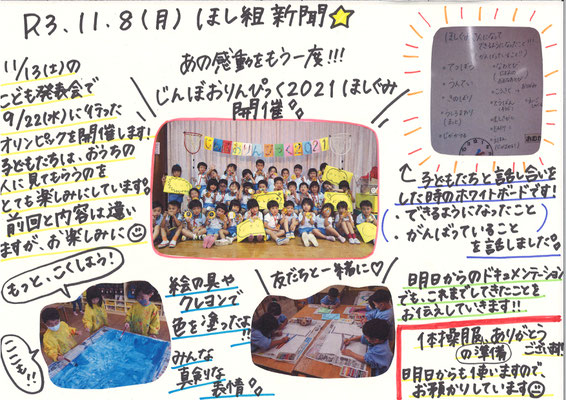 R3.11.8(月) ほし組新聞☆
あの感動をもう一度!!!
じんぼおりんぴっく2021ほしぐみ
開催。
11/13(土)の
こども発表会で
9/22(水)に行った
オリンピックを開催します!
子どもたちは、おうちの
人に見てもらうのを
とても楽しみにしています。
前回と内容は違い
ますが、お楽しみに
じんぼおりんぴっく2021
子どもたちと話し合いを
した時のホワイトボードです!
・できるようになったこと
・がんばっていること
を話しました。
もっと、ごくしよう!
ここも!!
絵の具や
クレヨンで
色を塗ったよ!!
みんな
真剣な
表情。
友だちと一緒に♡
明日からのドキュメンテーション
でも、これまでしてきたことを
お伝えしていきます!!
体操服、ありがとう
の準備 ございます!
明日からも使いますので、
お預かりしています